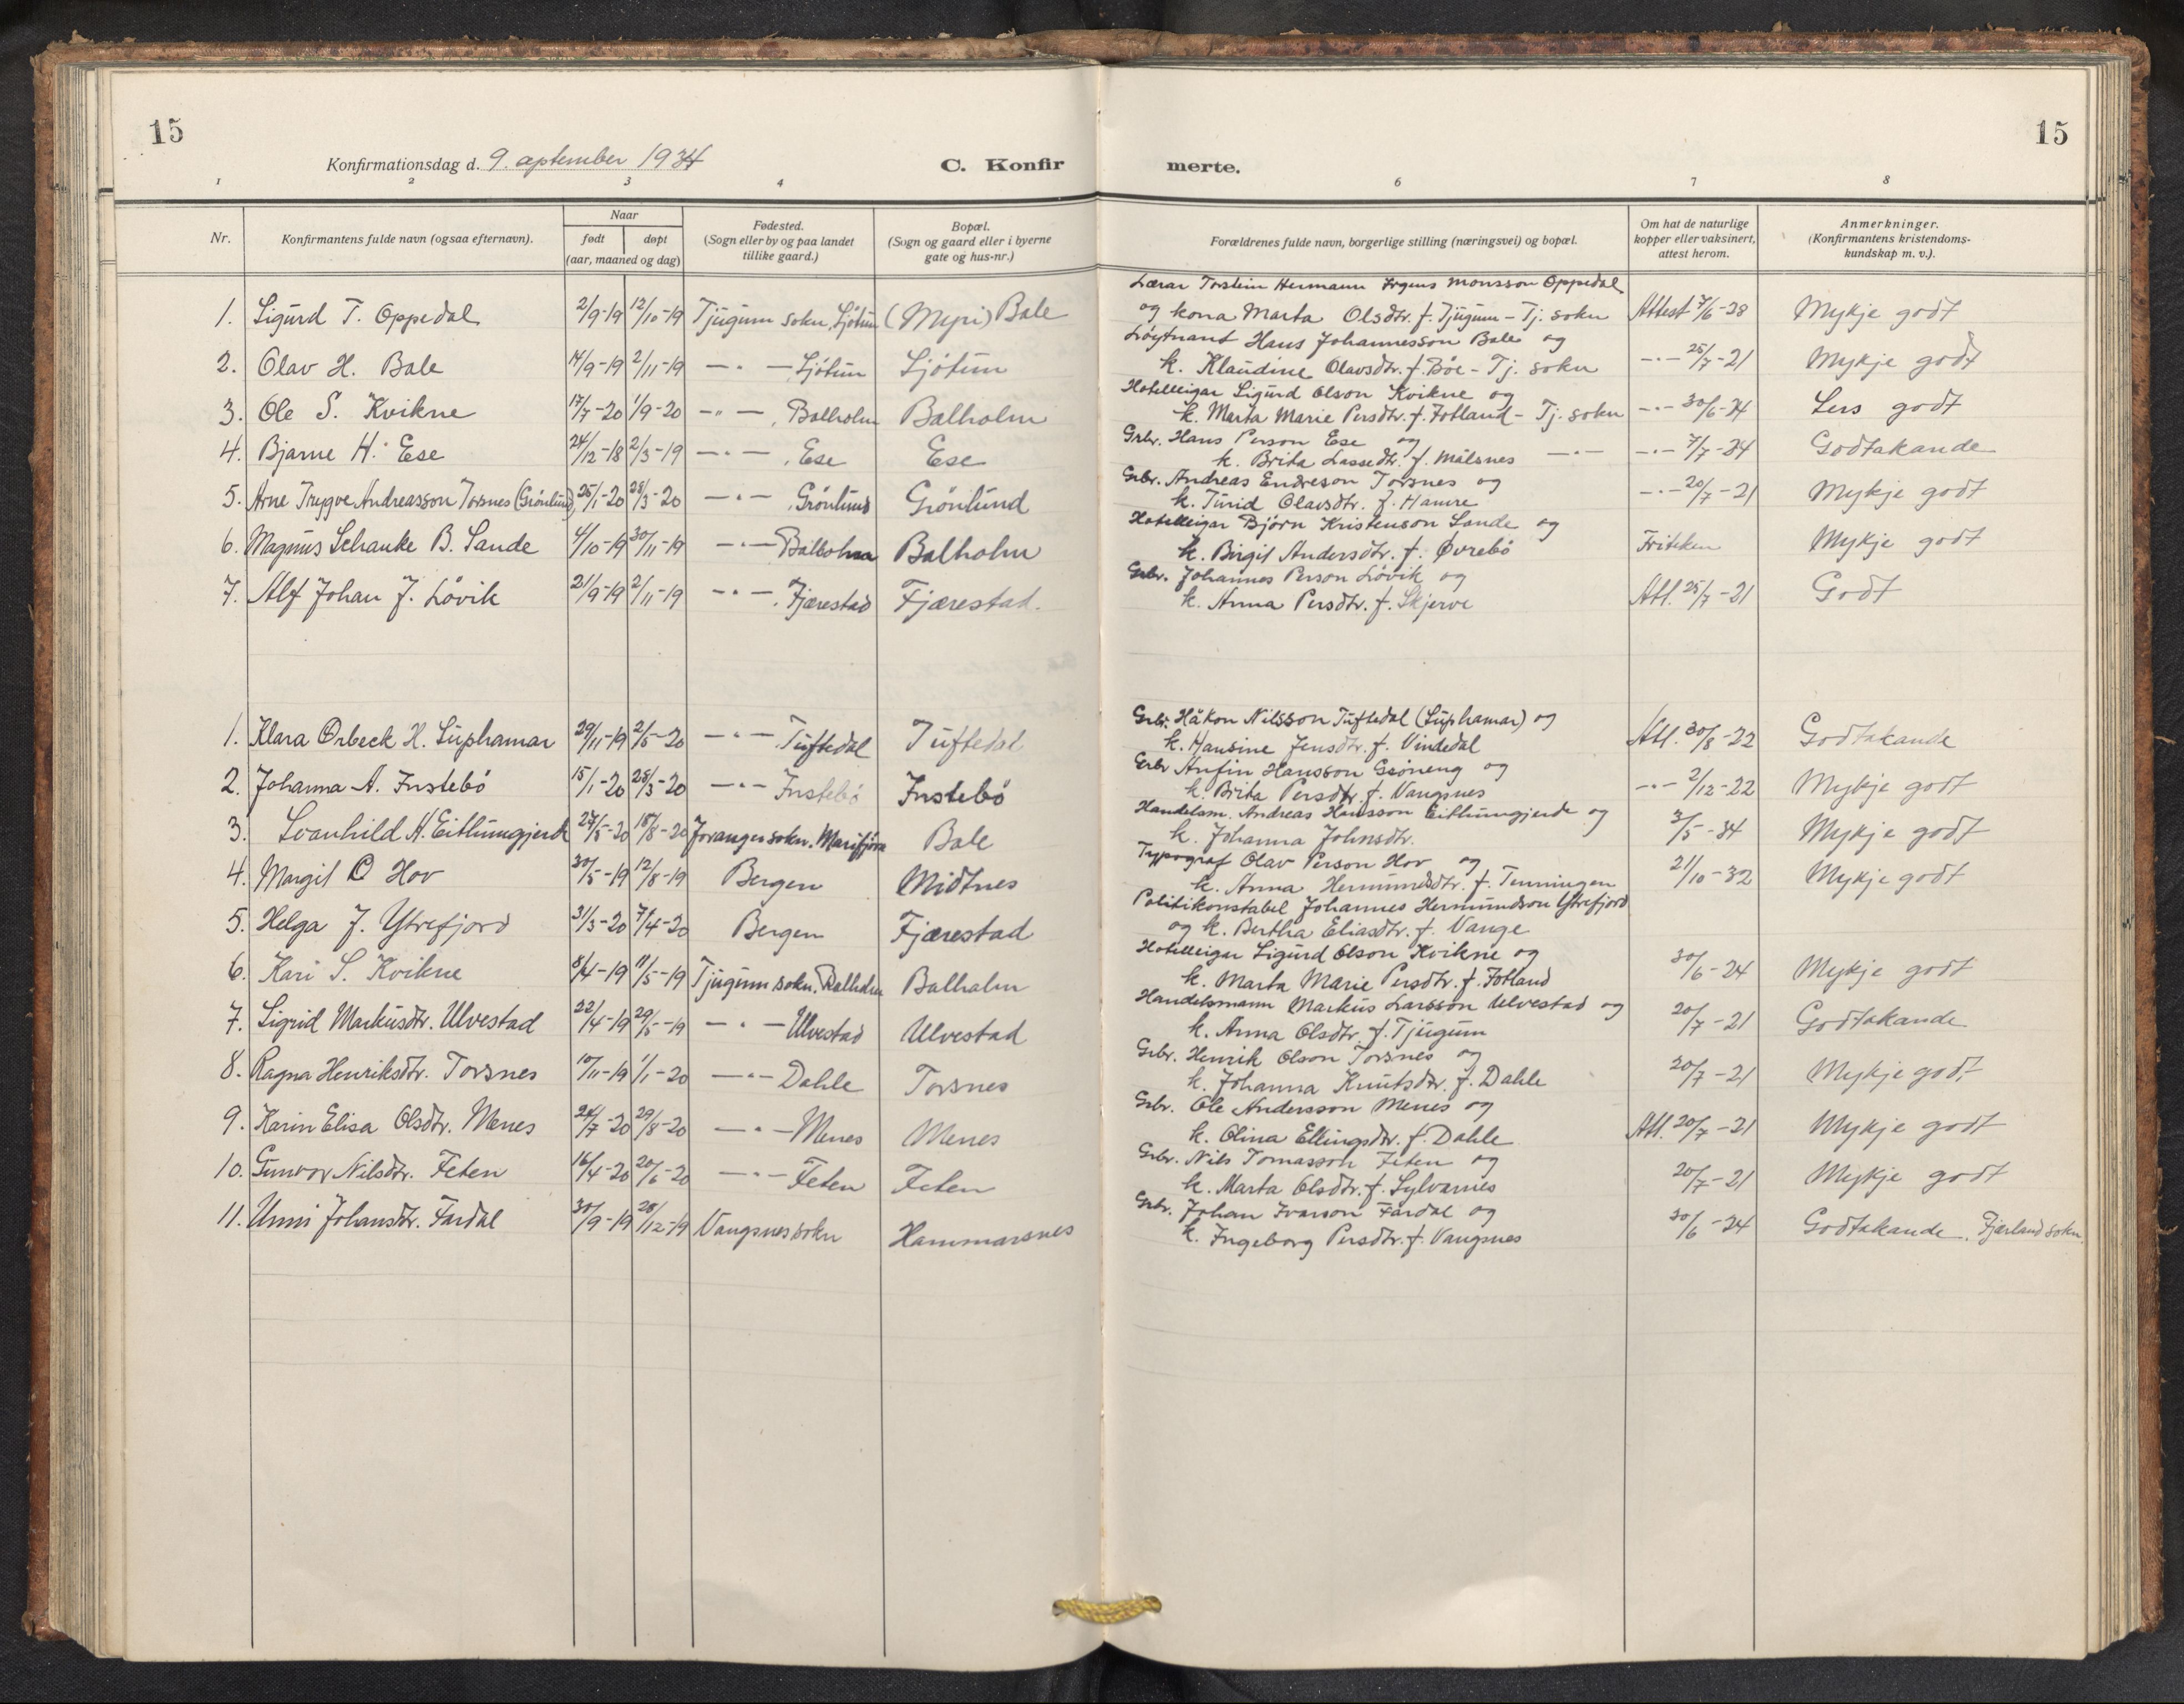 15
15
Konfirmationsdag d. 9. september 1934
C. Konfir merte.
1 2 3 4 6 7 8
Nr.
Konfirmantens fulde navn (ogsaa efternavn).
Naar
født døpt
(aar, maaned og dag)
Fødested.
(Sogn eller by og paa landet
tillike gaard.)
Bopæl.
(Sogn og gaard eller i byerne
gate og hus-nr.)
Forældrenes fulde navn, borgerlige stilling (næringsvei) og bopæl.
Om hat de naturlige
kopper eller vaksinert,
attest herom.
Anmerkninger.
(Konfirmantens kristendoms-
kundskap m. v.).
Lærar Torstein Hermann Monsson Oppedal
1. Sigurd T. Oppedal 2/9-19 12/10-19 Tjugum sokn, Ljótun (Myri) Bale og kona Marta Olsdtr. f. Tjugum - Tj. sokn Attest 7/6-28 Mykje godt
Løytnant Hans Johannesson Bale og
2. Olav H. Bale 14/9-19 2/11-19 —"— Ljótun Ljótun k. Klaudine Olavsdtr. f. Böe - Tj. sokn —"— 25/7-21 Mykje godt
Hotelleigar Sigurd Olson Kvikne og
3. Ole S. Kvikne 17/7-20 1/9-20 —"—, Balholm Balholm k. Marta Marie Persdtr. f. Jotland - Tj. sokn —"— 30/6-24 Sers godt
Grbr. Hans Person Ese og
4. Bjarne H. Ese 24/12-18 2/3-19 —"—, Ese Ese k. Brita Lassedtr. f. Målsnes —"— —"— 7/7-34 Godtakande
Grbr. Andreas Endreson Torsnes og
5. Arne Trygve Andreasson Torsnes (Grönlund) 25/1-20 28/3-20 —"— Grönlund Grönlund k. Turid Olavsdtr. f. Hamre —"— 20/7-21 Mykje godt
Hotelleigar Bjørn Kristenson Sande og
6. Magnus Schanke B. Sande 4/10-19 30/11-19 —"— Balholm Balholm k. Birgit Andersdtr. f. Øvrebö Friteken Mykje godt
Grbr. Johannes Person Lövik og
7. Alf Johan J. Lövik 21/9-19 2/11-19 —"—, Fjærestad Fjærestad. k. Anna Persdtr. f. Skjerve Att. 25/7-21 Godt
Grbr. Håkon Nilsson Tuftedal (Suphamar) og
1. Klara Orbeck H. Suphamar 29/11-19 2/5-20 —"— Tuftedal Tuftedal k. Hansine Jensdtr. f. Vindedal Att. 30/8-22 Godtakande
Grbr Anfin Hansson Gröneng og
2. Johanna A. Instebö 15/1-20 28/3-20 —"— Instebö Instebö k. Brita Persdtr. f. Vangsnes —"— 2/12-22 Mykje godt
Handelsm. Andreas Hansson Eithungjerde og
3. Svanhild A. Eithungjerde 27/5-20 15/8-20 Joranger sokn. Marifjöra Bale k. Johanna Johnsdtr. 3/5-34 Mykje godt
Typograf Olav Person Hov og
4. Margit O Hov 30/5-19 12/8-19 Bergen Midtnes k. Anna Hermundsdtr. f. Tenningen 21/10-32 Mykje godt
Politikonstabel Johannes Hermundson Ytrefjord
5. Helga J. Ytrefjord 31/3-20 7/4-20 Bergen Fjærestad og k. Bertha Eliasdtr. f. Vange
Hotelleigar Sigurd Olson Kvikne og
6. Kari S. Kvikne 8/4-19 11/5-19 Tjugum sokn. Balholm Balholm k. Marta Marie Persdtr. f. Jotland 30/6-24 Mykje godt
Handelsmann Markus Larsson Ulvestad og
7. Sigrid Markusdtr. Ulvestad 22/4-19 29/5-19 —"— Ulvestad Ulvestad k. Anna Olsdtr. f. Tjugum 20/7-21 Godtakande
Grbr. Henrik Olson Torsnes og
8. Ragna Henriksdtr. Torsnes 10/11-19 1/1-20 —"— Dahle Torsnes k. Johanna Knutsdtr. f. Dahle 20/7-21 Mykje godt
Grbr. Ole Andersson Menes og
9. Karin Elisa Olsdtr. Menes 24/7-20 29/8-20 —"— Menes Menes k. Olina Ellingsdtr. f. Dahle Att. 20/7-21 Mykje godt
Grbr. Nils Tomasson Feten og
10. Gunvor Nilsdtr. Feten 16/4-20 20/6-20 —"— Feten Feten k. Marta Olsdtr. f. Sylvarnes 20/7-21 Mykje godt
Grbr. Johan Ivarson Fardal og
11. Unni Johansdtr. Fardal 30/9-19 28/12-19 Vangsnes sokn Hammarsnes k. Ingeborg Persdtr. f. Vangsnes 30/6-24 Godtakande. Fjærland sokn.